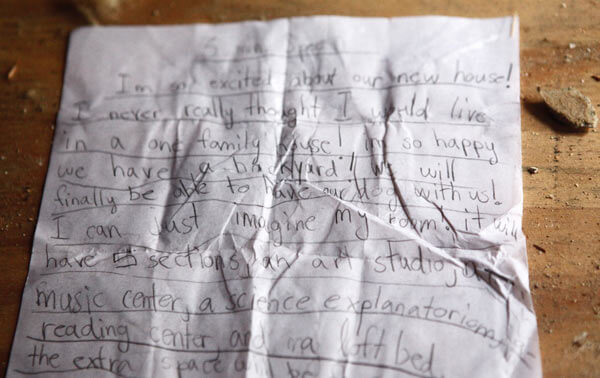 5 min Speech
I'm so excited about our new house!
I never really thought I would live
in a one family house! im so happy
we have a backyard! We will
finally be able to have our dog with us!
I can just imagine my room. it will
have 5 sections, an art studio, a
music center, a science explanatorium,
reading center and a loft bed.
the extra space will be